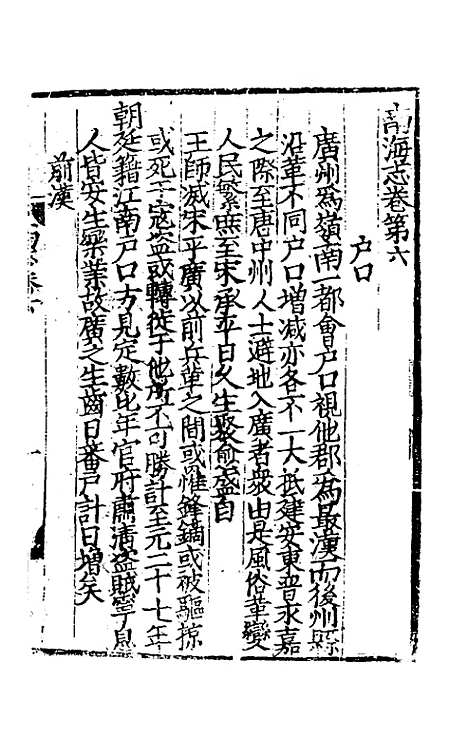 南海志卷第六
户口
廣州爲嶺南一都會户口視他郡爲最漢而後州縣
沿革不同户口增减亦各不一大抵建安東晉永嘉
之際至唐中州人士避地入廣者衆由是風俗革變
人民繁庶至宋承平日久生聚愈盛自
王師滅宋平廣以前兵革之間或罹鋒鏑或被驅掠
或死于寇盗或轉徙于他所不可勝計至元二十七年
朝廷籍江南户口方見定數比年官府肅清盗賊寧息
人皆安生樂業故廣之生齒日蕃户計日增矣
前漢